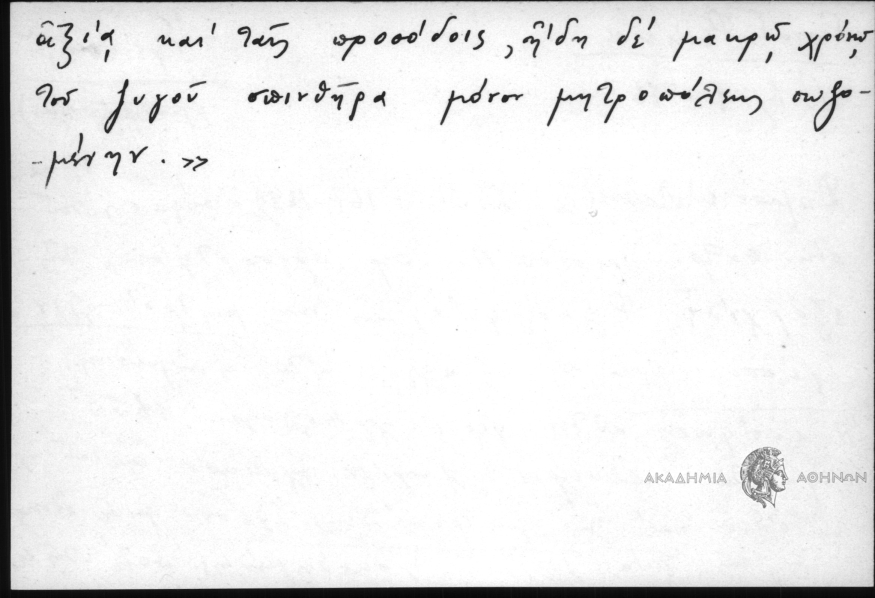 ἀξίᾳ καὶ ταῖς προσόδοις, ἤδη δέ μακρῷ χρόνῳ
τοῦ ζυγοῦ σπινθῆρα μόνον μητροπόλεως σωζο-
-μένην. »
ΑΚΑΔΗΜΙΑ ΑΘΗΝΩΝ